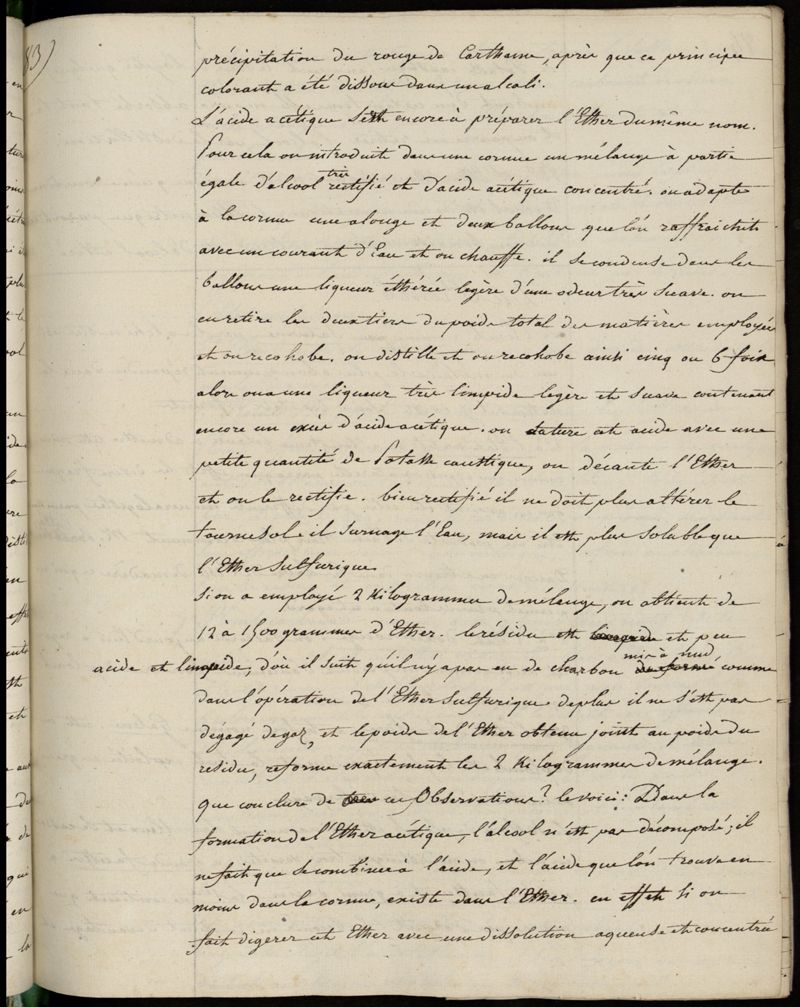 83)
précipitation du rouge de Carthame, après que ce principe
colorant a été dissous dans un alcali.
L'acide acétique sert encore à préparer l'Ether du même nom.
Pour cela on introduit dans une cornue un mélange à partie
égale d'alcool très rectifié et d'acide acétique concentré. on adapte
à la cornue une alonge et deux ballons que l'on raffraichit
avec un courant d'Eau et on chauffe. il se condense dans les
ballons une liqueur éthérée légère d'une odeur très suave. on
en retire les deux tiers du poids total des matières employées
et on recohobe. on distille et on recohobe ainsi cinq ou 6 fois
alors on a une liqueur très limpide légère et suave contenant
encore un excès d'acide acétique. on sature cet acide avec une
petite quantité de Potasse caustique, on décante l'Ether
et on le rectifie. bien rectifié il ne doit plus altérer le
tournesol. il surnage l'Eau, mais il est plus soluble que
l'Ether Sulfurique
Si on a employé 2 Kilogrammes de mélange, on obtient de
12 à 1500 grammes d'Ether. le résidu est et peu
acide et limpide, d'où il suit qu'il n'y a pas eu de charbon mis à nud comme
dans l'opération de l'Ether Sulfurique de plus il ne s'est pas
dégagé de gaz, et le poids de l'Ether obtenu joint au poids du
résidu, reforme exactement les 2 Kilogrammes de mélange.
Que conclure de ces Observations? le voici: Dans la
formation de l'Ether acétique, l'alcool n'est pas décomposé; il
ne fait que se combiner à l'acide, et l'acide que l'on trouve en
moins dans la cornue, existe dans l'Ether. en effet si on
fait digerer cet Ether avec une dissolution aqueuse et concentrée